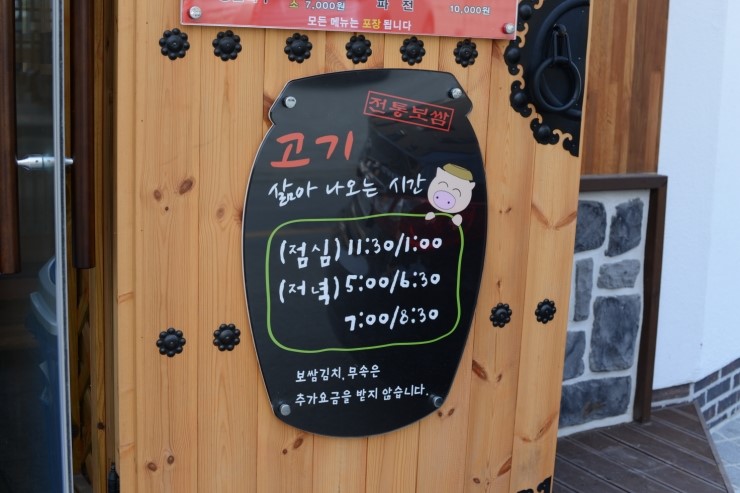 소 7,000원 파 전 10,000원
모든 메뉴는 포장 됩니다
전통보쌈
고기
삶아 나오는 시간
(점심) 11:30/1:00
(저녁) 5:00/6:30
7:00/8:30
보쌈김치, 무속은
추가요금을 받지 않습니다.